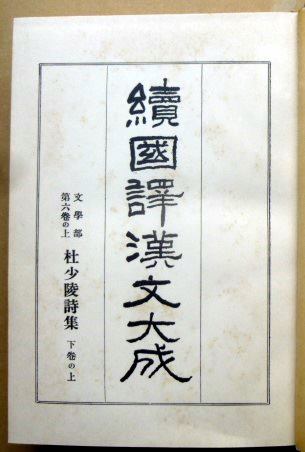 續國譯漢文大成
文學部
第六卷の上
杜少陵詩集 下卷の上